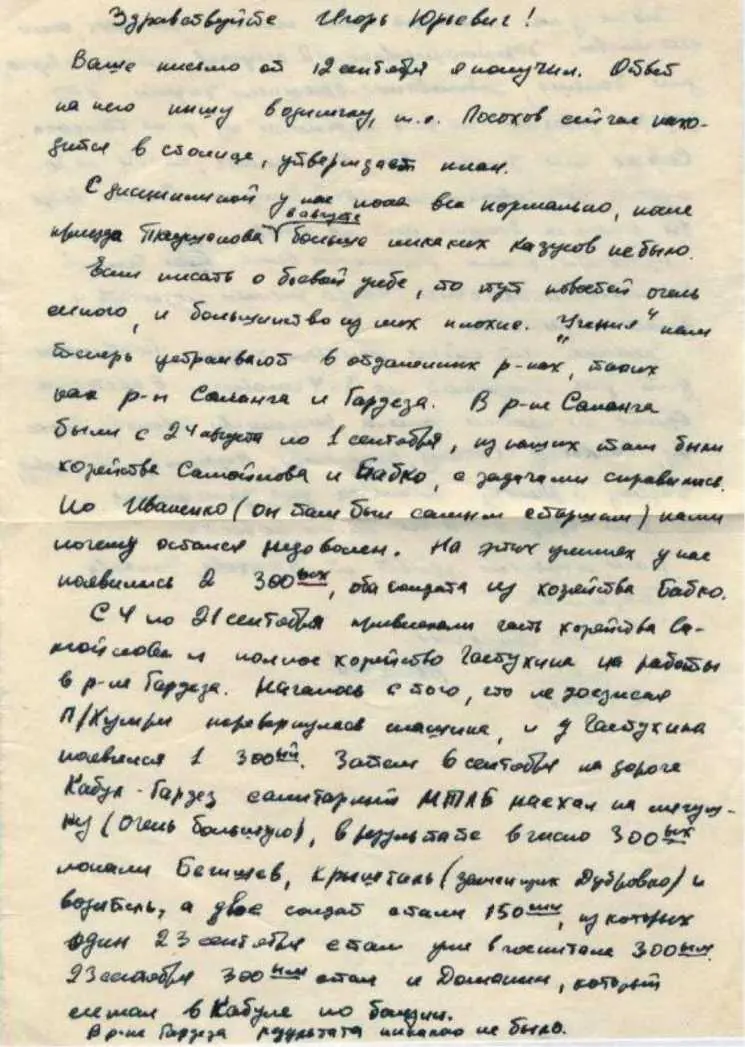 Здравствуйте Игорь Юрьевич!
Ваше письмо от 12 сентября я получил. Ответ
на него пишу в одиночку, т.к. Посохов сейчас нахо-
дится в столице, утверждает план.
С дисциплиной у нас пока все нормально, после
приезда в августе больше никаких казусов не было.
Если писать о боевой учебе, то тут новостей очень
много, и большинство из них плохие. "Учения" нам
теперь устраивают в отдаленных р-нах, таких
как р-н Саланга и Гардеза. В р-не Саланга
были с 24 августа по 1 сентября, из наших там были
хозяйства Самойлова и Бабко, с задачами справились.
Но Иваненко (он там был самым старшим) нами
почему остался недоволен. На этих учениях у нас
появились 2 300ых, оба солдата из хозяйства Бабко.
С 4 по 21 сентября привлекали часть хозяйства Са-
мойлова и полное хозяйство Частухина на работы
в р-не Гардеза. Началось с того, что не доезжая
П/Хумри перевернулась машина, и у Частухина
появился 1 300ый. Затем 6 сентября на дороге
Кабул-Гардез санитарный МТЛБ наехал на
(очень большую), в результате в число 300ых
попали Бегишев, (заменщик Дубровко) и
водитель, а двое солдат стали 150ыми, из которых
один 23 сентября стал уже в госпитале 300ым.
23 сентября 300ым стал и Доманин, который
лежал в Кабуле по болезни.
В р-не Гардеза результата никакого не было.